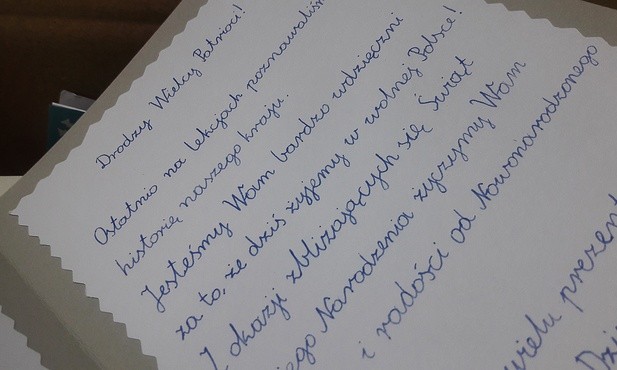 Drodzy Wielcy Patrioci!
Ostatnio na lekcjach poznawaliśm
historię naszego kraju.
Jesteśmy Wam bardzo wdzięczni
za to, że dziś żyjemy w wolnej Polsce!
Z okazji zbliżających się Świąt
iego Narodzenia życzymy Wam
i radości od Nowonarodzonego
wielu prezent